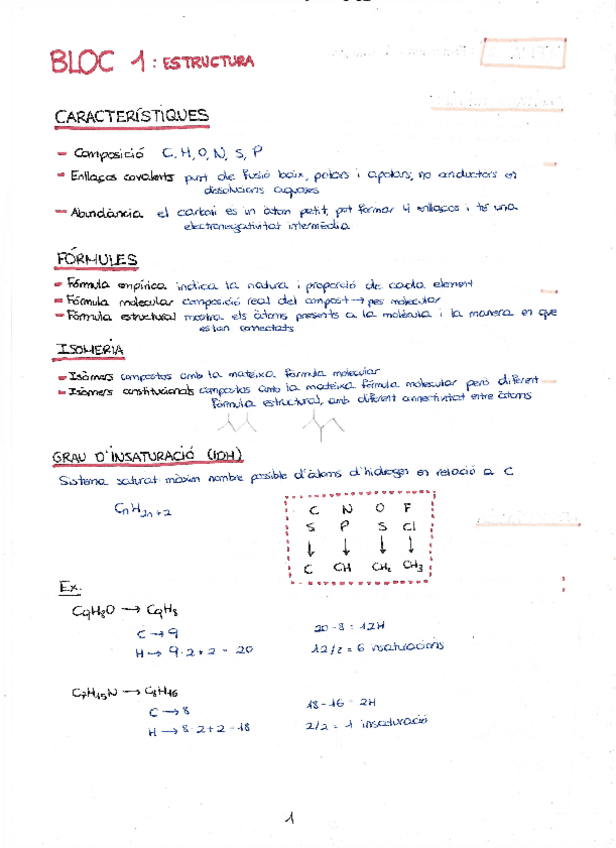 BLOC 1: ESTRUCTURA
CARACTERÍSTIQUES
- Composició C, H, O, N, S, P
- Enllaços covalents punt de fusió baix, polars i apolars, no conductors en
dissolucions aquoses
- Abundància el carboni és un àtom petit, pot formar 4 enllaços i té una
electronegativitat intermèdia
FÓRMULES
- Fórmula empírica indica la natura i proporció de cada element
- Fórmula molecular composició real del compost → pes molecular
- Fórmula estructural mostra els àtoms presents a la molècula i la manera en que
estan conectats
ISOMERIA
- Isòmers compostos amb la mateixa fórmula molecular
- Isòmers constitucionals compostos amb la mateixa fórmula molecular però diferent
fórmula estructural, amb diferent connectivitat entre àtoms
GRAU D'INSATURACIÓ (IDH)
Sistema saturat màxim nombre possible d'àtoms d'hidrogen en relació a C
CnH2n+2
C N O F
S P S Cl
↓ ↓ ↓ ↓
C CH CH₂ CH₃
Ex.
C9H8O → C9H8
C → 9
20-8 = 12H
H → 9·2+2 = 20
12/2 = 6 insaturacions
C7H15N → C8H16
C → 8
18-16 = 2H
H → 8·2+2 = 18
2/2 = 1 insaturació
1